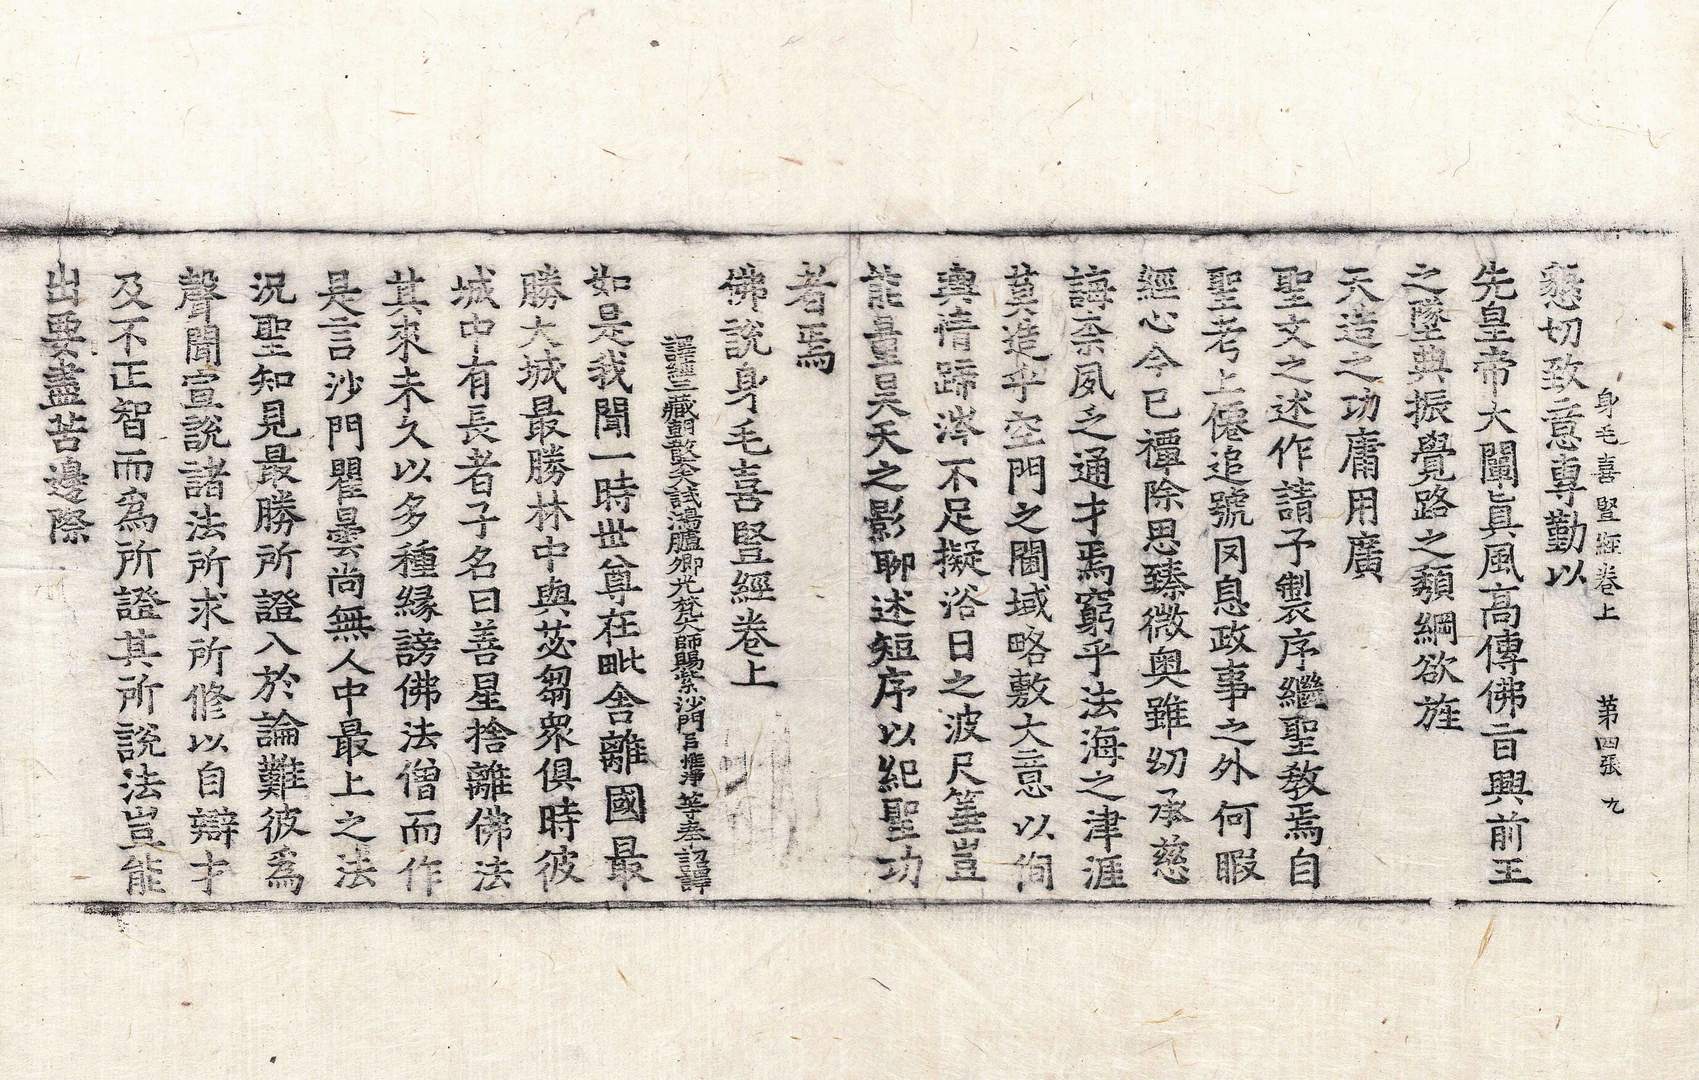 身毛喜竪經卷上　第四張　九
懇切致意專勤以
先皇帝大闡眞風高傳佛旨興前王
之墜典振覺路之頹綱欲旌
天造之功庸用廣
聖文之述作請予製序繼聖教焉自
聖考上僊追號罔息政事之外何暇
經心今已禫除思臻微奧雖幼承慈
誨柰夙乏通才焉窮乎法海之津涯
莫造乎空門之閫域略敷大意以侚
輿情蹄涔不足擬浴日之波尺箠豈
能量昊天之影聊述短序以紀聖功
者焉
佛說身毛喜竪經卷上
譯經三藏朝散大夫試鴻臚卿光梵大師賜紫沙門臣惟淨等奉詔譯
如是我聞一時世尊在毗舍離國最
勝大城最勝林中與苾芻衆俱時彼
城中有長者子名曰善星捨離佛法
其來未久以多種緣謗佛法僧而作
是言沙門瞿曇尚無人中最上之法
況聖知見最勝所證入於論難彼爲
聲聞宣說諸法所求所修以自辯才
及不正智而爲所證其所說法豈能
出要盡苦邊際